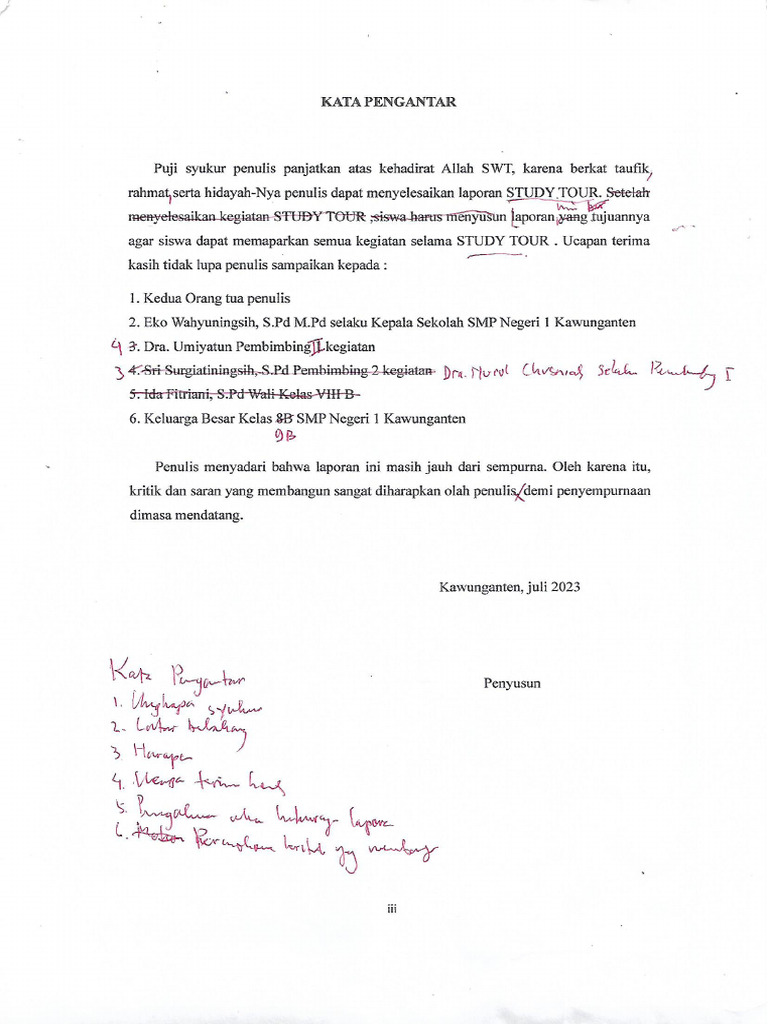 KATA PENGANTAR
Puji syukur penulis panjatkan atas kehadirat Allah SWT, karena berkat taufik,
rahmat, serta hidayah-Nya penulis dapat menyelesaikan laporan STUDY TOUR. Setelah
menyelesaikan kegiatan STUDY TOUR ,siswa harus menyusun laporan yang tujuannya
agar siswa dapat memaparkan semua kegiatan selama STUDY TOUR . Ucapan terima
kasih tidak lupa penulis sampaikan kepada :
1. Kedua Orang tua penulis
2. Eko Wahyuningsih, S.Pd M.Pd selaku Kepala Sekolah SMP Negeri 1 Kawunganten
4 3. Dra. Umiyatun Pembimbing II kegiatan
3 4. Sri Surgiatiningsih, S.Pd Pembimbing 2 kegiatan Dra. Nurul Selaku I
5. Ida Fitriani, S.Pd Wali Kelas VIII B
6. Keluarga Besar Kelas 8B SMP Negeri 1 Kawunganten
9B
Penulis menyadari bahwa laporan ini masih jauh dari sempurna. Oleh karena itu,
kritik dan saran yang membangun sangat diharapkan olah penulis demi penyempurnaan
dimasa mendatang.
Kawunganten, juli 2023
Penyusun
Kata Pengantar
1. syukur
2. Latar belakang
3 Harapan
4.
5.
6.
iii